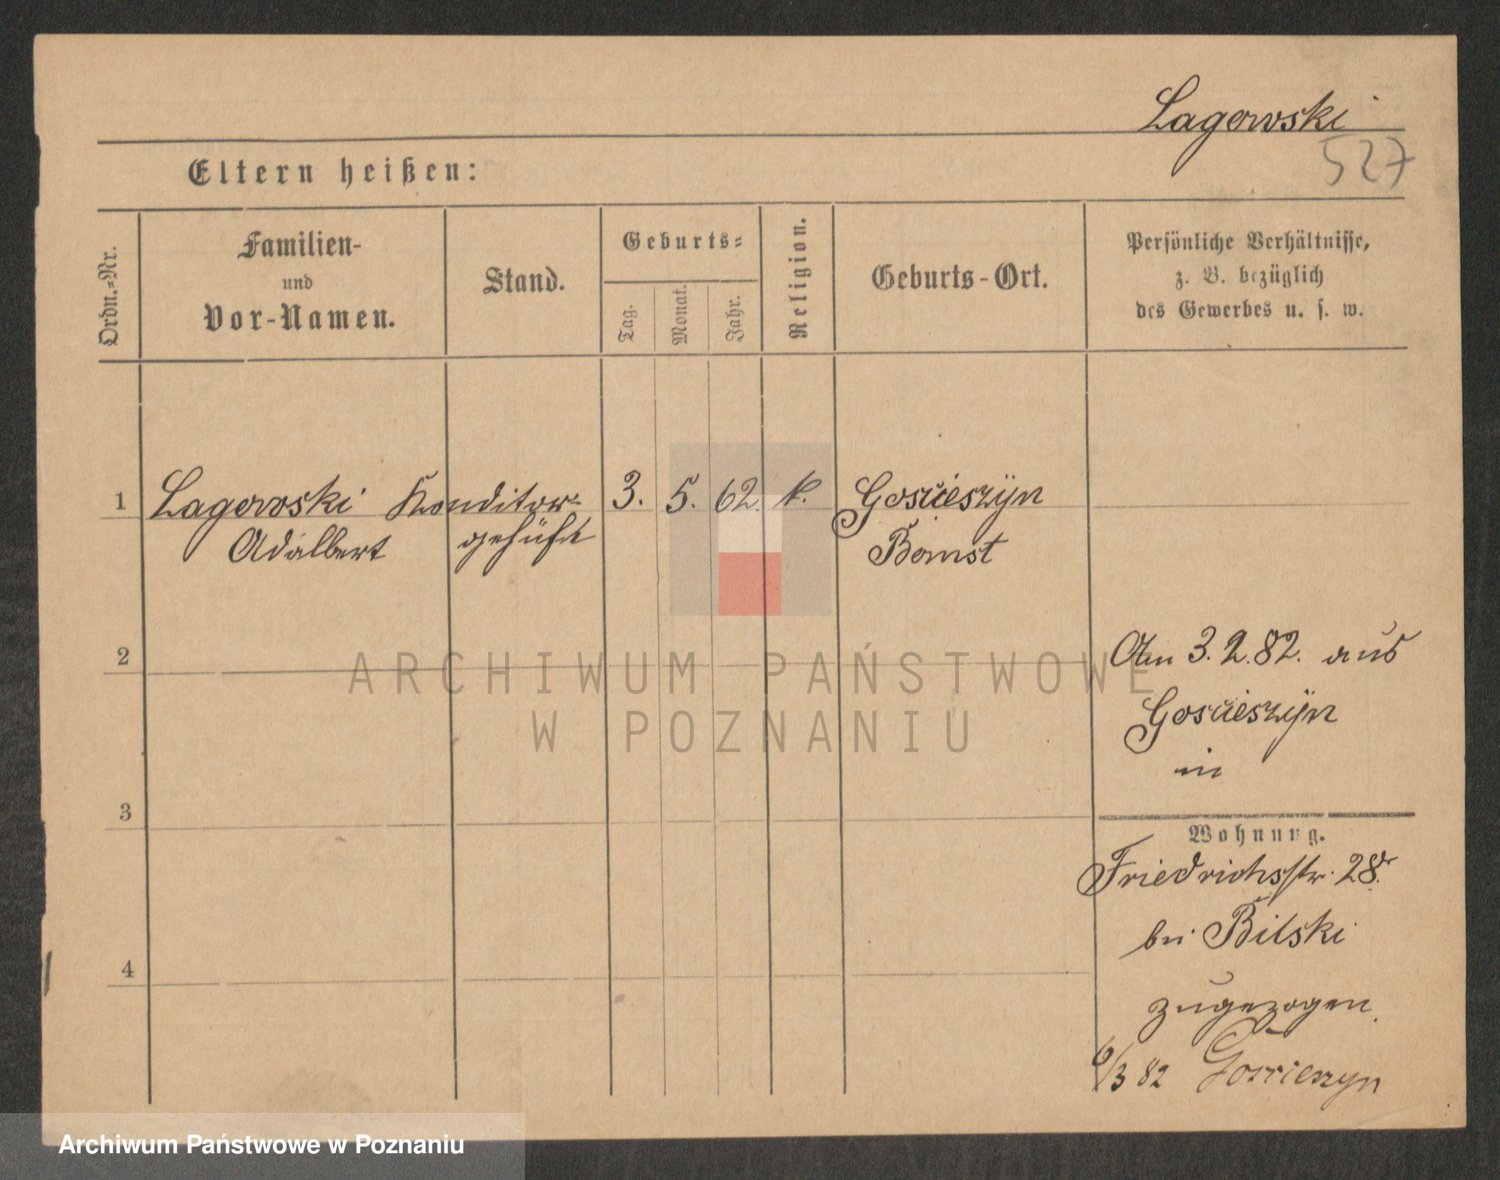 Lagowski
527
Eltern heißen:
Ordn.-Nr.
Familien-
und
Vor-Namen.
Stand.
Geburts-
Tag.
Monat.
Jahr.
Religion.
Geburts-Ort.
Persönliche Verhältnisse,
z. B. bezüglich
des Gewerbes u. s. w.
1 Lagowski Konditor- 3. 5. 62. k. Gościeszyn
Adalbert Bomst
2
Am 3. 2. 82. aus
Gościeszyn
in
3
Wohnung.
Friedrichsstr. 28.
bei Bilski
4
zugezogen.
6/3 82 Gościeszyn
ARCHIWUM PAŃSTWOWE
W POZNANIU
Archiwum Państwowe w Poznaniu